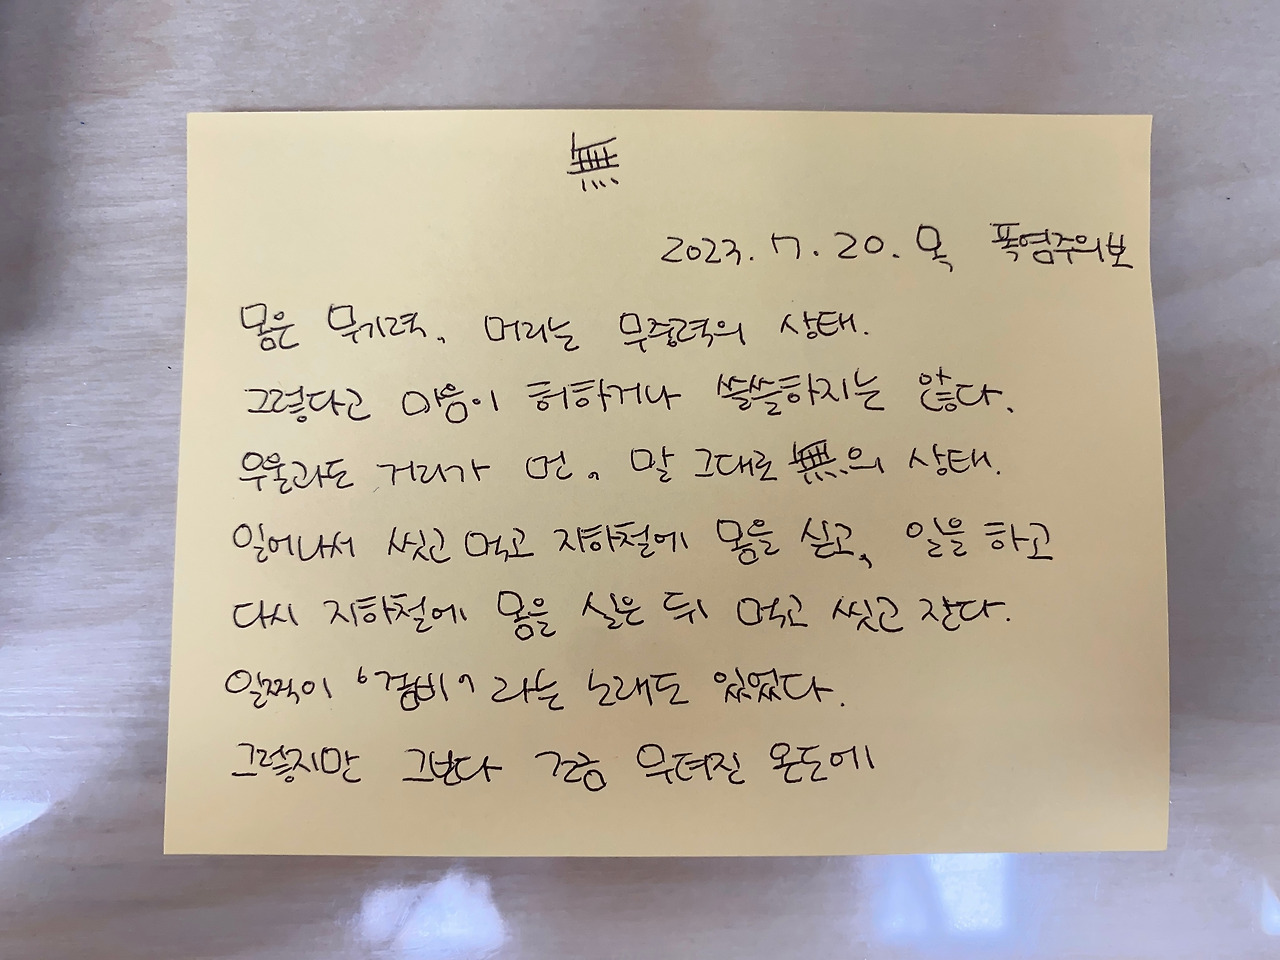 無
2023. 7. 20. 목 폭염주의보
몸은 무기력, 머리는 무중력의 상태.
그렇다고 마음이 허하거나 쓸쓸하지는 않다.
우울과도 거리가 먼, 말 그대로 無의 상태.
일어나서 씻고 먹고 지하철에 몸을 싣고, 일을 하고
다시 지하철에 몸을 실은 뒤 먹고 씻고 잔다.
일찍이 '좀비' 라는 노래도 있었다.
그렇지만 그보다 조금 무뎌진 온도에